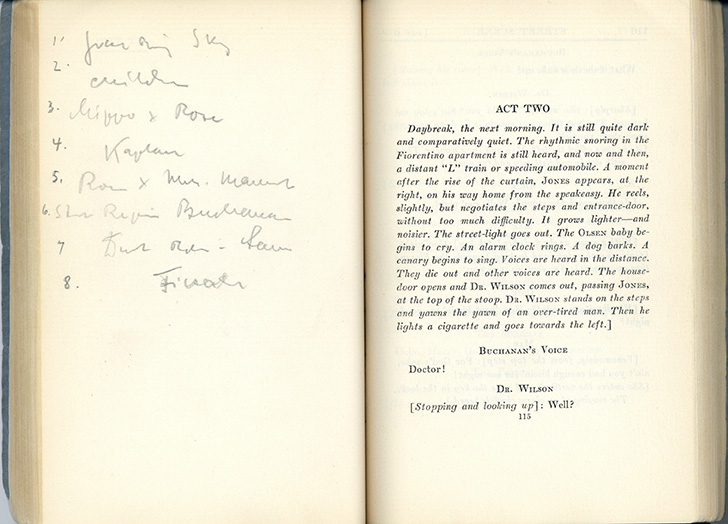 1.
2. children
3. Hippo & Rose
4. Kaplan
5. Rose & Mrs. Maurrant
6. Buchanan
7
8.
ACT TWO
Daybreak, the next morning. It is still quite dark
and comparatively quiet. The rhythmic snoring in the
Fiorentino apartment is still heard, and now and then,
a distant "L" train or speeding automobile. A moment
after the rise of the curtain, JONES appears, at the
right, on his way home from the speakeasy. He reels,
slightly, but negotiates the steps and entrance-door,
without too much difficulty. It grows lighter—and
noisier. The street-light goes out. The OLSEN baby be-
gins to cry. An alarm clock rings. A dog barks. A
canary begins to sing. Voices are heard in the distance.
They die out and other voices are heard. The house-
door opens and DR. WILSON comes out, passing JONES,
at the top of the stoop. DR. WILSON stands on the steps
and yawns the yawn of an over-tired man. Then he
lights a cigarette and goes towards the left.]
BUCHANAN'S VOICE
Doctor!
DR. WILSON
[Stopping and looking up]: Well?
115